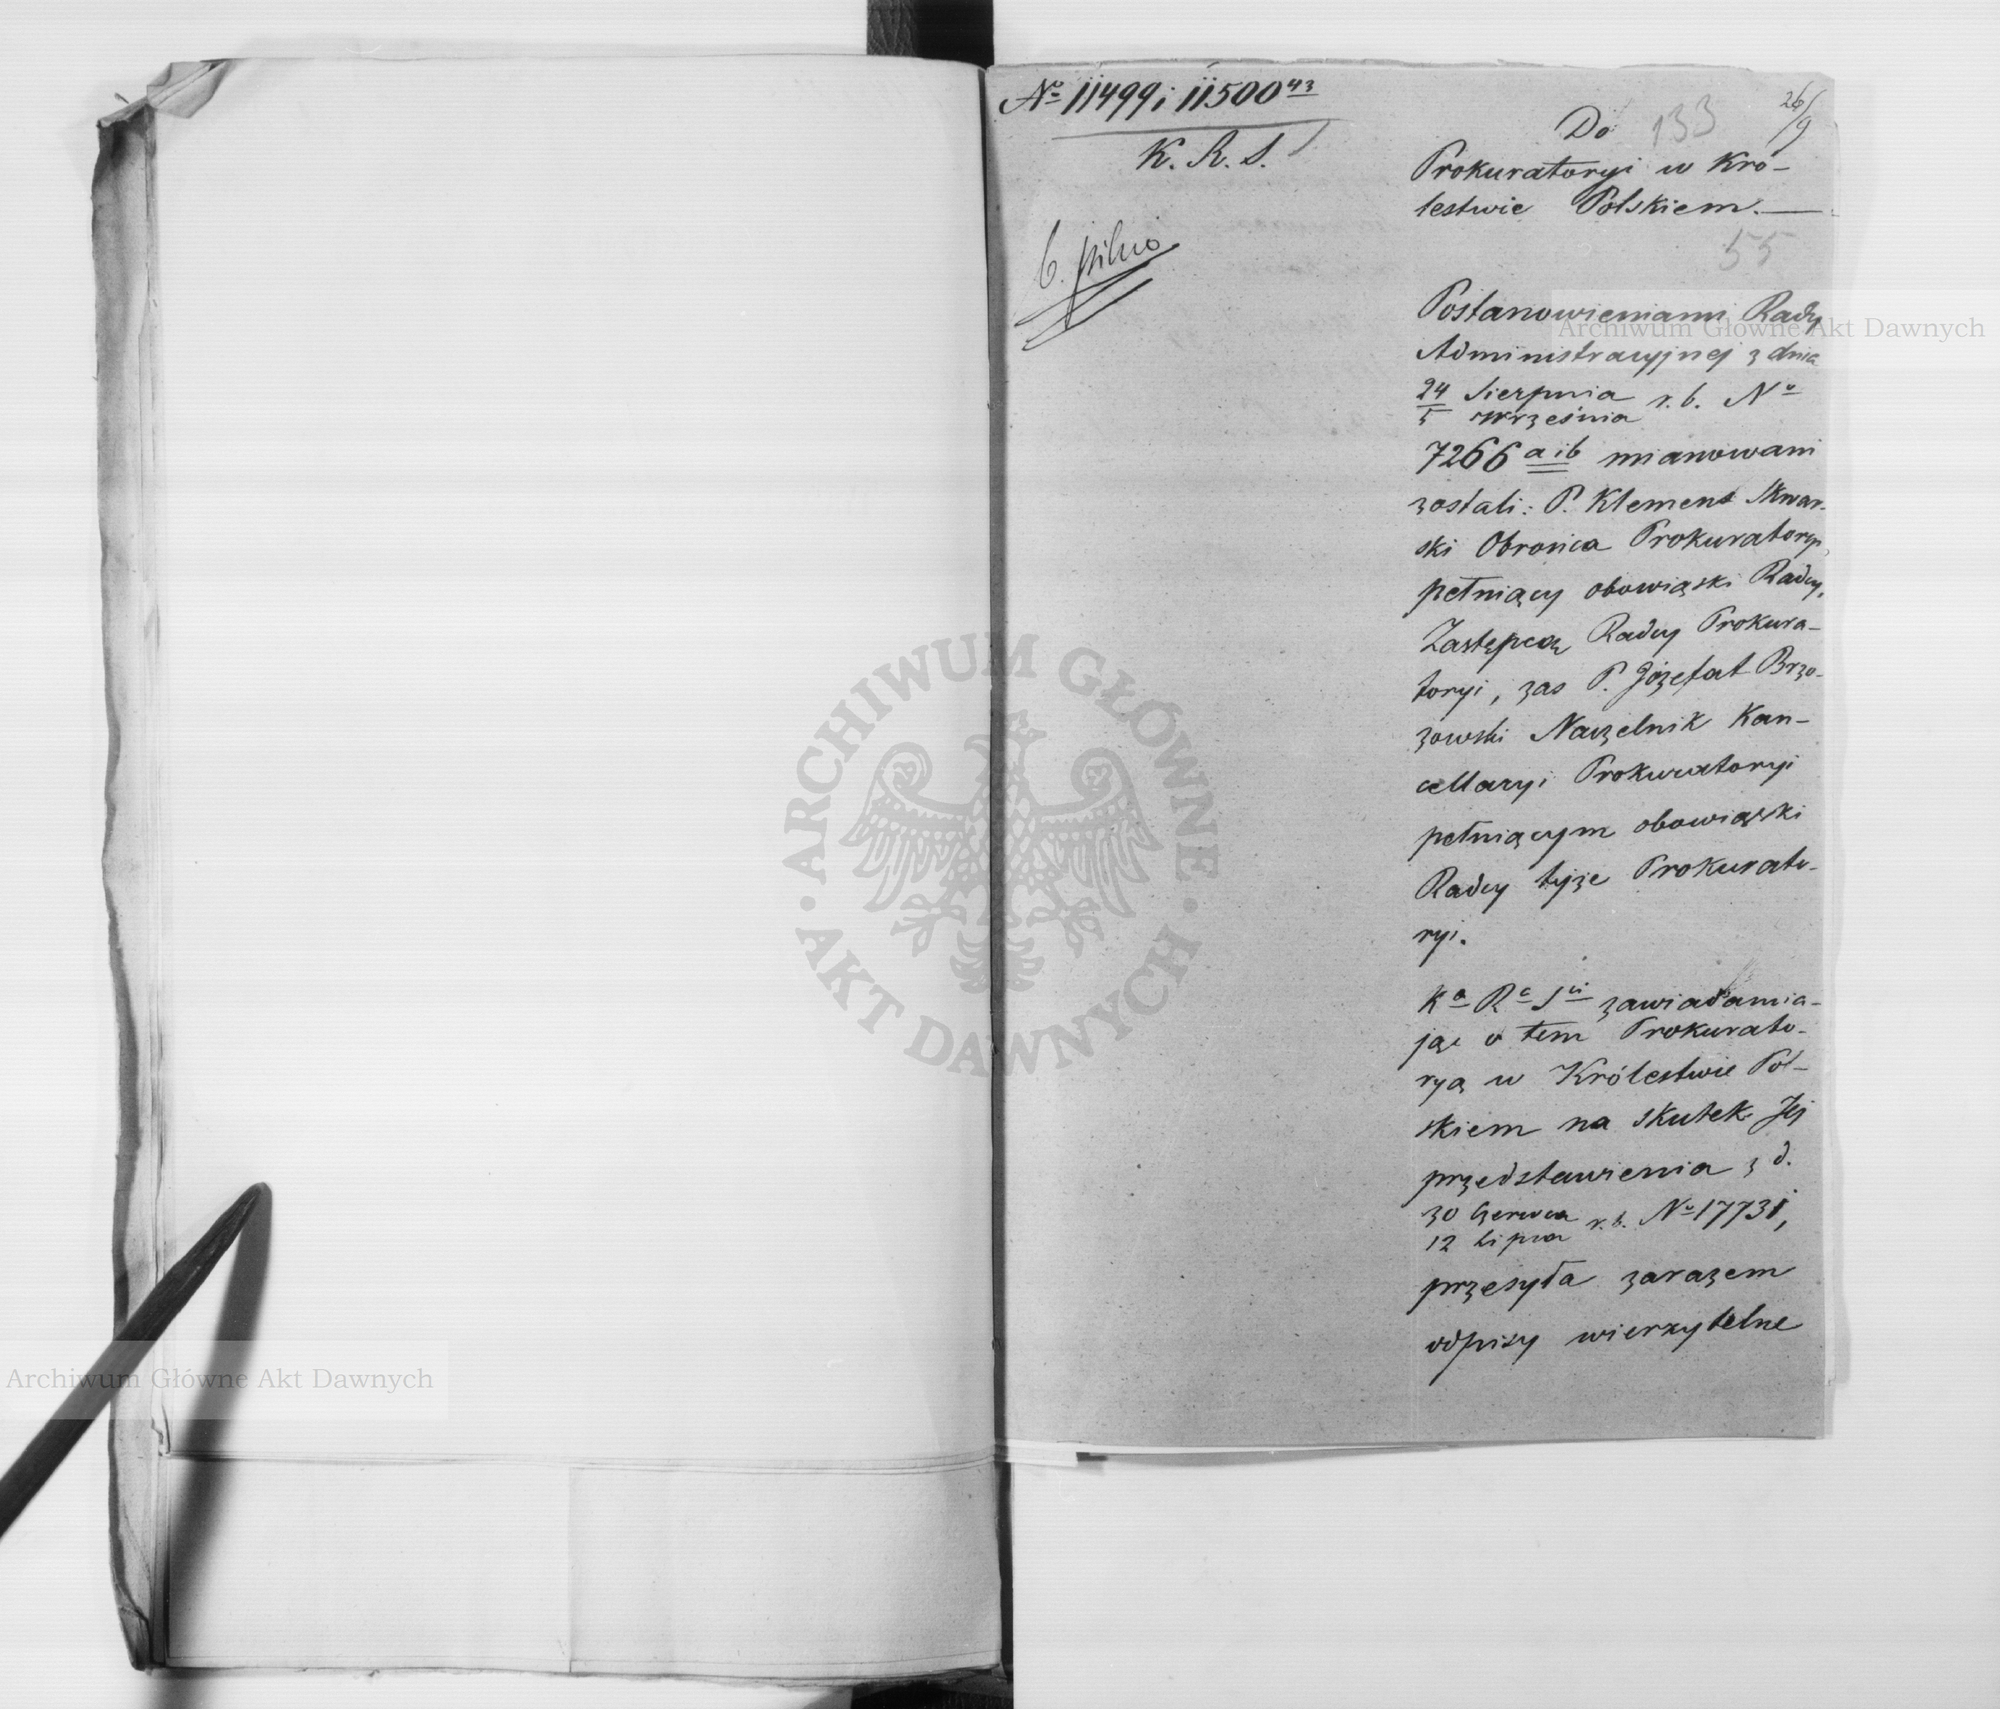 № 11499 i 11500 43
K. R. S.
b. pilno
Do
133
26/9
Prokuratoryi w Kró-
lestwie Polskiem. —
55
Postanowieniami Rady
Administracyjnej z dnia
24 Sierpnia
5 Września r. b. No
7266 a i b mianowani
zostali: P. Klemens Skwar-
ski Obrońca Prokuratoryi,
pełniący obowiązki Radcy,
Zastępcą Radcy Prokura-
toryi, zas P. Józefat Brzo-
zowski Naczelnik Kan-
cellaryi Prokuratoryi
pełniącym obowiązki
Radcy tyże Prokurato-
ryi.
Ka Rc Sci zawiadamia-
jąc o tem Prokurato-
ryą w Królestwie Pol-
skiem na skutek Jej
przedstawienia z d.
30 Czerwca
12 Lipca r. b. No 17731,
przesyła zarazem
odpisy wierzytelne
Archiwum Główne Akt Dawnych
ARCHIWUM GŁÓWNE AKT DAWNYCH
Archiwum Główne Akt Dawnych